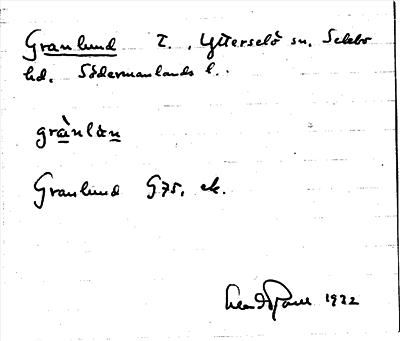 Granlund T., Ytterselö sn. Selebo
hd. Södermanlands l..
grànlàn
Granlund G75, ek.
1922